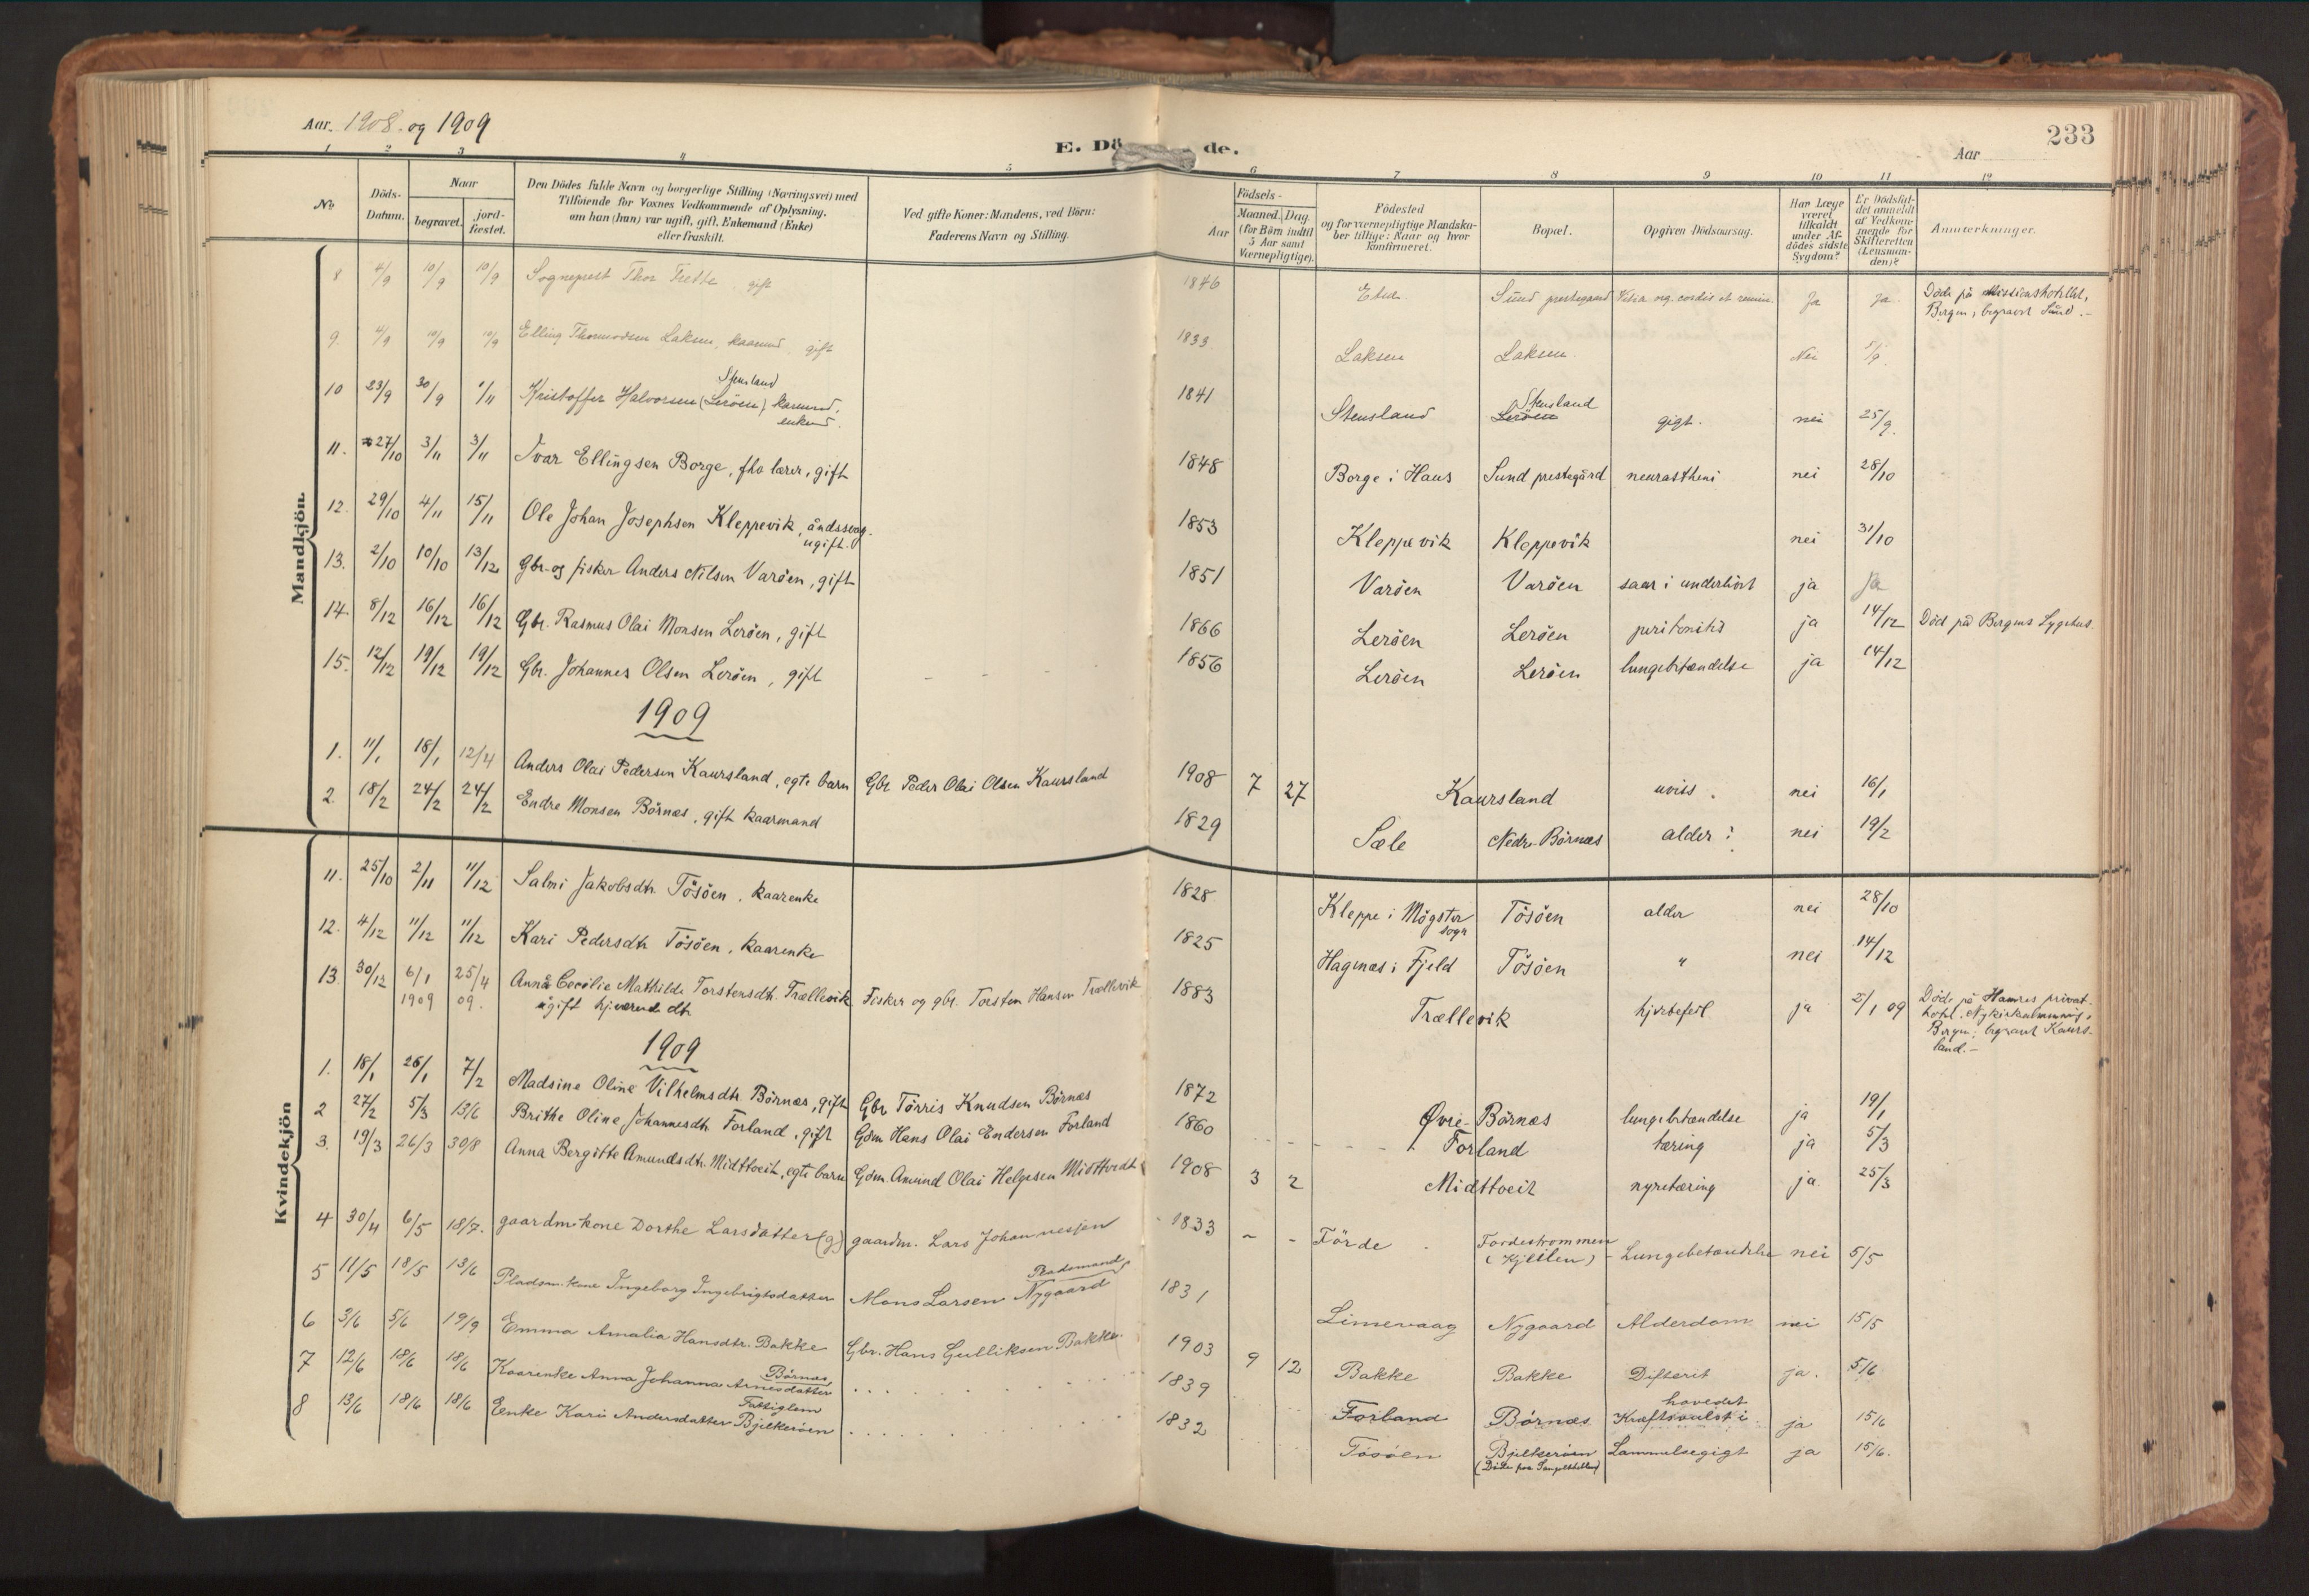 Aar. 1908. og 1909
E. Dö de.
Aar
233
1 2 3 4 5 6 7 8 9 10 11 12
No
Döds-Datum.
Naar
begravet.
jord-fæstet.
Den Dödes fulde Navn og borgerlige Stilling (Næringsvei) med Tilföiende for Voxnes Vedkommende af Oplysning, om han (hun) var ugift, gift, Enkemand (Enke) eller fraskilt.
Ved gifte Koner: Mandens, ved Börn: Faderens Navn og Stilling.
Födsels-
Aar
Maaned. Dag
(for Börn indtil 5 Aar samt Værnepligtige).
Födested og for værnepligtige Mandskaber tillige: Naar og hvor konfirmeret.
Bopæl.
Opgiven Dödsaarsag.
Har Læge været tilkaldt under Afdödes sidste Sygdom?
Er Dödsfaldet anmeldt af Vedkommende for Skifteretten (Lensmanden)?
Anmærkninger.
Mandkjön
8 4/9 10/9 10/9 Sogneprest Thor Frette gift 1846 Etne Sund prestegaard Ja Ja. Döde på Missionshotellet, Bergen, begravet Sund.-
9. 4/9 10/9 10/9 Elling Thormodsen Laksen, kaarmd, gift 1833 Laksen Laksen Nei 5/9
10 23/9 30/9 1/11 Kristoffer Halvorsen (Leröen) Stensland kaarmd. enkem. 1841 Stensland Leröen Stensland gigt. nei 25/9.
11. 27/10 3/11 3/11 Ivar Ellingsen Borge, fhv lærer, gift 1848 Borge i Haus Sund prestegård neurastheni nei 28/10
12. 29/10 4/11 15/11 Ole Johan Josephsen Kleppevik, åndssvag. ugift. 1853 Kleppevik Kleppevik nei 31/10
13. 2/10 10/10 13/12 Gbr. og fisker Anders Nilsen Varöen, gift 1851 Varöen Varöen saar i underlivet ja ja
14. 8/12 16/12 16/12 Gbr. Rasmus Olai Monsen Leröen, gift 1866 Leröen Leröen peritonitis ja 14/12 Död på Bergens Sygehus.
15. 12/12 19/12 19/12 Gbr. Johannes Olsen Leröen, gift - - - 1856 Leröen Leröen lungebetændelse ja 14/12
1909
1. 11/1 18/1 12/4 Anders Olai Pedersen Kaursland, egte barn Gbr Peder Olai Olsen Kaursland 1908 7 27 Kaursland uviss. nei 16/1
2. 18/2 24/2 24/2 Endre Monsen Börnæs, gift kaarmand 1829 Sæle Nedre-Börnæs alder: nei 19/2
Kvindekjön
11. 25/10 2/11 11/12 Salmi Jakobsdtr. Tösöen, kaarenke 1828 Kleppe i Mögster sogn Tösöen alder nei 28/10
12. 4/12 11/12 11/12 Kari Pedersdtr Tösöen, kaarenke 1825 Hagenæs i Fjeld Tösöen " nei 14/12
13. 30/12 6/1 1909 25/4 09. Anna Cecilie Mathilde Torstensdtr. Trællevik ugift hjværende dtr Fisker og gbr. Torsten Hansen Trællevik 1883 Trællevik hjertefeil ja 2/1 09 Döde på Hamres privathotel, Nykirkealmenning, Bergen; begravet Kaursland.-
1909
1. 18/1 26/1 7/2 Madsine Oline Vilhelmsdtr Börnæs, gift Gbr Törris Knudsen Börnæs 1872 Øvre-Börnæs lungebetændelse ja 19/1
2 27/2 5/3 13/6 Brithe Oline Johannesdtr Forland, gift Gdm Hans Olai Endersen Forland 1860 Forland tæring ja 5/3
3. 19/3 26/3 30/8 Anna Bergitte Amundsdtr. Midttveit, egte barn Gdm. Amund Olai Helgesen Midttveit 1908 3 2 Midttveit nyretæring ja 25/3
4 30/4 6/5 18/7. gaardm kone Dorthe Larsdatter (g) gaardm. Lars Johannesjen 1833 - - Förde Fordestrommen (Kjeilen) Lungebetændelse nei 5/5
5 11/5 18/5 13/6 Pladsm. kone Ingeborg Ingebrigtsdatter Plademand, Mons Larsen Nygaard 1831 Limevaag Nygaard Alderdom nei 15/5
6 3/6 5/6 19/9 Emma Amalia Hansdtr. Bakke Gbr. Hans Gulliksen Bakke. 1903 9 12 Bakke Bakke Difterit ja. 5/6
7 12/6 18/6 18/6 Kaarenke Anna Johanna Arnesdatter Börnæs, . . . . 1839 Forland Börnæs Kræftsvulst i hovedet ja 15/6
8 13/6 18/6 18/6 Enke Kari Andersdatter Bjelkeröen Fattiglem . . . . . 1832 Tösöen Bjelkeröen Lammelsegigt ja 15/6.